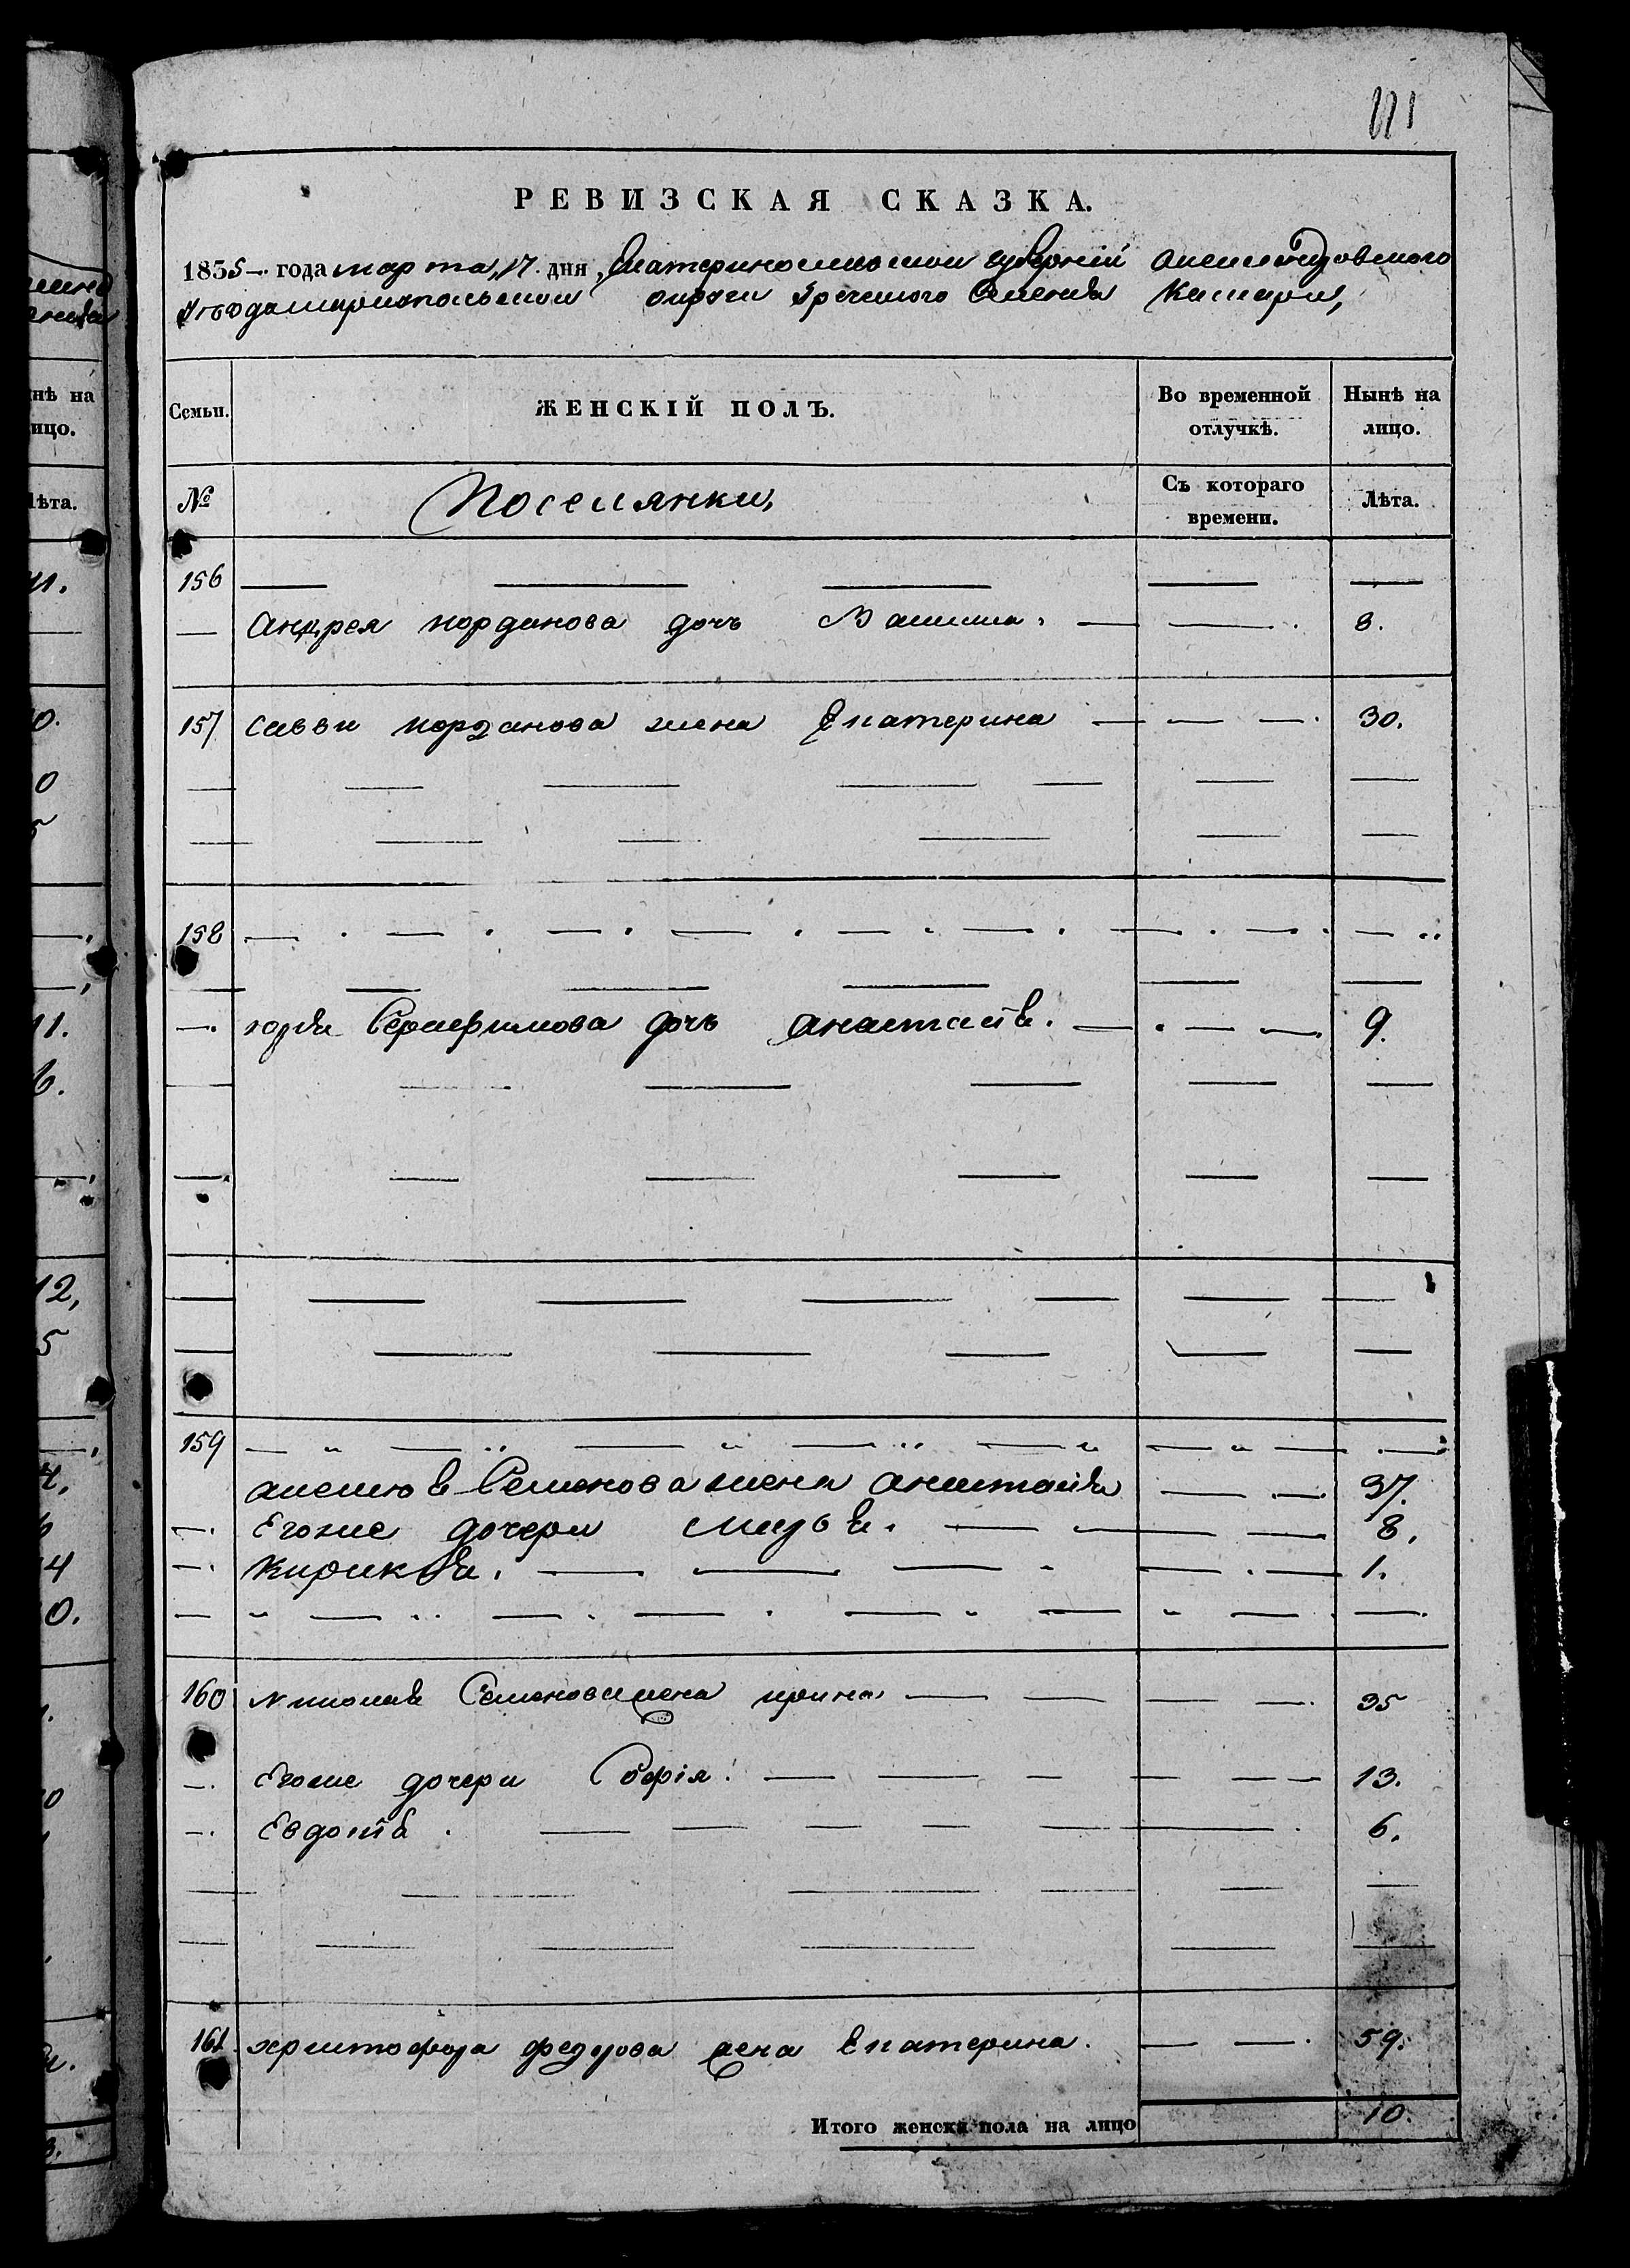 111
РЕВИЗСКАЯ СКАЗКА.
1835 года марта, 17. дня, Екатеринославской губерніи Александровского
уезда мариопольской округи Греческого Селенія
Семьи.
ЖЕНСКІЙ ПОЛЪ.
Во временной отлучкѣ.
Нынѣ на лицо.
№
Поселянки,
Съ котораго времени.
Лѣта.
156
Андрея иорданова дочь 8.
157 савви иорданова жена Екатерина 30.
158
юрія Серафимова дочь анастасія. 9.
159
алексѣя Семенова жена анастасія 37.
Егоже дочери 8.
Кирикія. 1.
160 Николая Семенова жена ирина 35
Егоже дочери Софія. 13.
Евдокія. 6.
161 христофора федорова жена Екатерина. 59.
Итого женска пола на лицо 10.
нѣ на
ицо.
Лѣта.